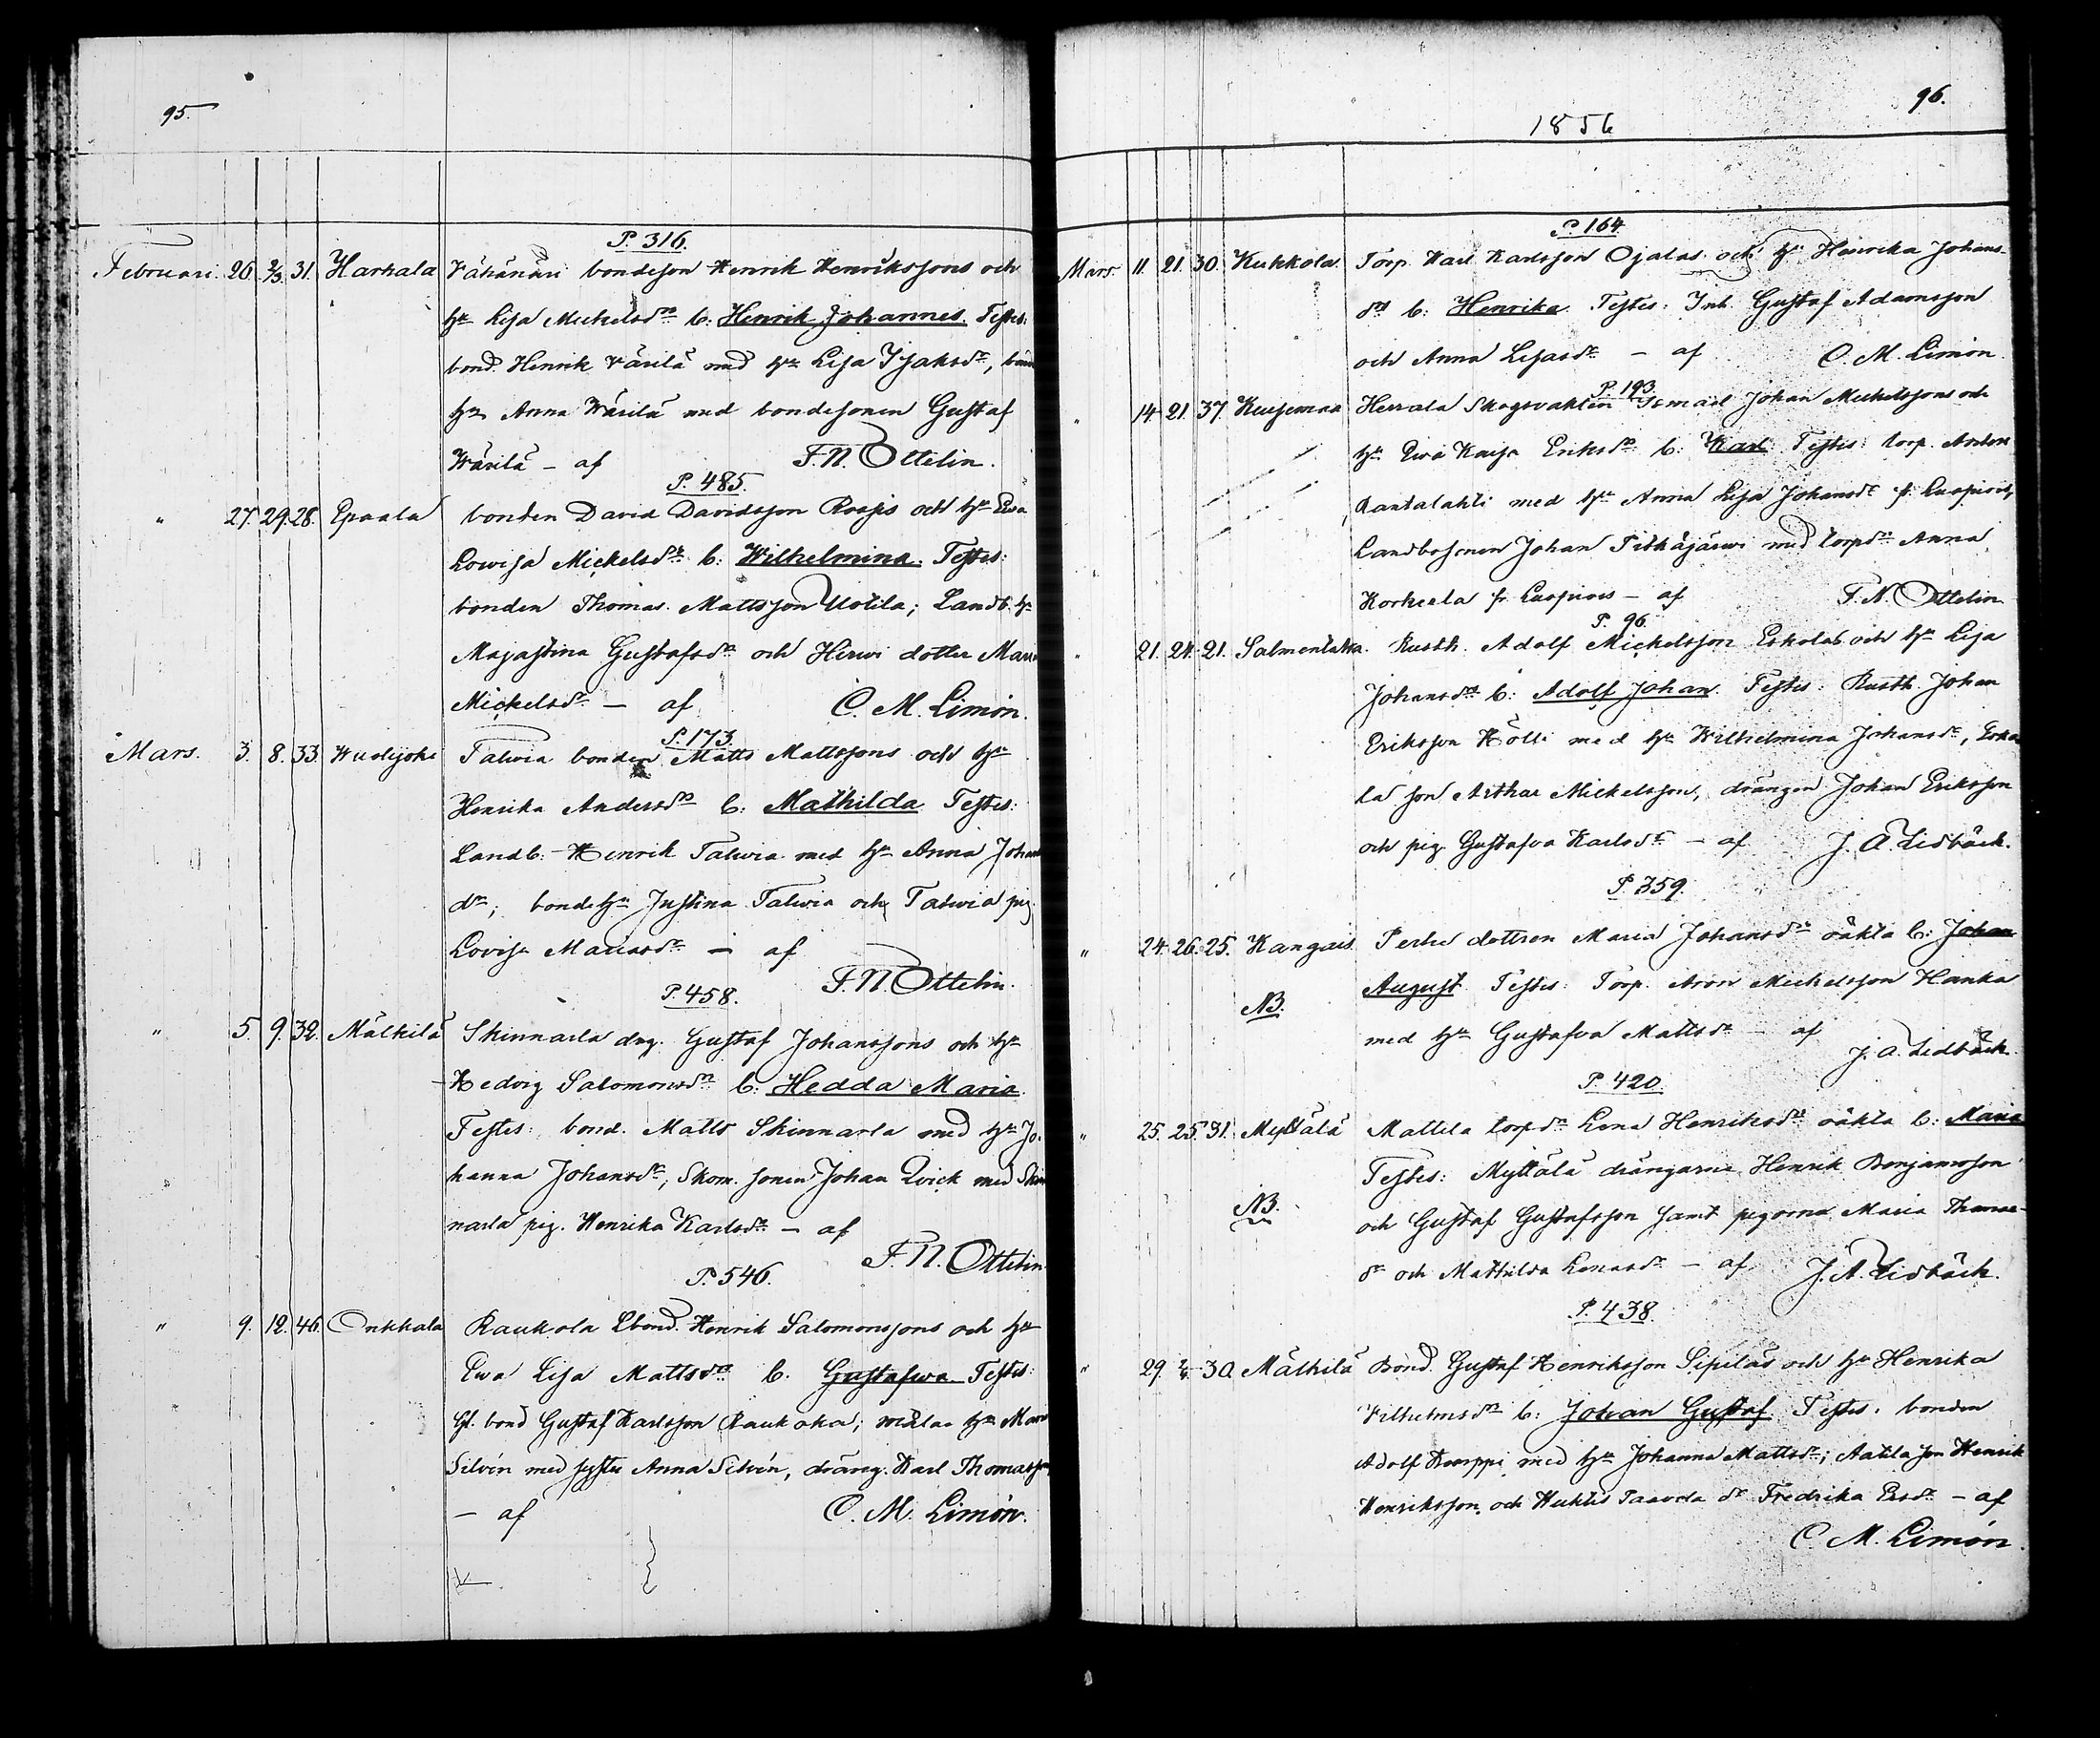 95.
P. 316.
Februari. 26. 2/3. 31. Harhala Vähänäri bondeson Henrik Henrikssons och
hu Lisa Mickelsdr b: Henrik Johannes. Testes:
bond. Henrik Wärilä med hu Lisa Isaksdr, bonde
hu Anna Wärilä med bondesonen Gustaf
Wärilä – af F. N. Ottelin.
P. 485.
" 27. 29. 28. Epaala bonden David Davidsson Rosjis och hu Eva
Lovisa Mickelsdr b: Wilhelmina. Testes:
bonden Thomas Mattsson Uotila; Landb. hu
Majastina Gustafsdr och Hirwi dotter Maria
Mickelsdr – af C. M. Limón.
P. 173.
Mars. 3. 8. 33. Wuolijoki Talwia bonden Matts Mattssons och hu
Henrika Andersdr b: Mathilda Testes:
Landb: Henrik Talwia med hu Anna Johans
dr; bondehu Justina Talwia och Talwia pig.
Lovisa Mariasdr – af
F. N. Ottelin.
P. 458.
" 5. 9. 32. Mälkilä Skinnarla dng. Gustaf Johanssons och hu
Hedvig Salomonsdr b: Hedda Maria.
Testes: bond. Matts Skinnarla med hu Jo-
hanna Johansdr, Skom. sonen Johan Qvick med Skin
narla pig. Henrika Karlsdr – af
F. N. Ottelin
P. 546.
" 9. 12. 46. Onkkala Raukola Lbond. Henrik Salomonssons och hu
Ewa Lisa Mattsdr b. Gustafwa Testes:
Gl. bond Gustaf Karlsson Raukola; målar hu Maria
Silvén med syster Anna Silvén, dräng. Karl Thomasson
– af C. M. Limón.
1856
96.
P. 164
Mars. 11. 21. 30. Kukkola. Torp. Karl Karlsson Ojalas och hu Henrika Johans-
dr b: Henrika. Testes: Inh. Gustaf Adamsson
och Anna Lisasdr – af C. M. Limón.
P. 193.
" 14. 21. 37. Kuisemaa Herrala Skogsvakten Ismael Johan Mickelssons och
hu Ewa Kajsa Eriksdr b: Karl Testes: torp. Anders
Rantalahti med hu Anna Lisa Johansdr fr. Luopiois,
Landbosonen Johan Pitkäjärwi med torpdr Anna
Korkeela fr Luopiois – af F. N. Ottelin.
P. 96.
" 21. 24. 21. Salmentaka. Rusth. Adolf Mickelsson Eskolas och hu Lisa
Johansdr b: Adolf Johan. Testes: Rusth. Johan
Eriksson Hölli med hu Wilhelmina Johansdr, Esko
la son Arthur Mickelsson, drängen Johan Eriksson
och pig. Gustafva Karlsdr – af J. A. Lidbäck.
P. 359.
" 24. 26. 25. Kangais Perhe dottren Maria Johansdr oäkta b: Johan
NB. August Testes: Torp. Aron Mickelsson Hanka
med hu Gustafva Mattsdr – af
J. A. Lidbäck.
P. 420.
" 25. 25. 31. Myttälä Mattila torpdr Lena Henriksdr oäkta b: Maria
Testes: Myttälä drängarne Henrik Benjamsson
NB. och Gustaf Gustafsson samt pigorna Maria Thomas-
dr och Mathilda Lenasdr – af J. A. Lidbäck.
P. 438.
" 29. 2/4 30. Mälkilä Bond. Gustaf Henriksson Sipiläs och hu Henrika
Vilhelmsdr b: Johan Gustaf. Testes: bonden
Adolf Knorppi med hu Johanna Mattsdr; Aatila son Henrik
Henriksson och Huktis Taavola dr Fredrika Ersdr – af
C. M. Limón.